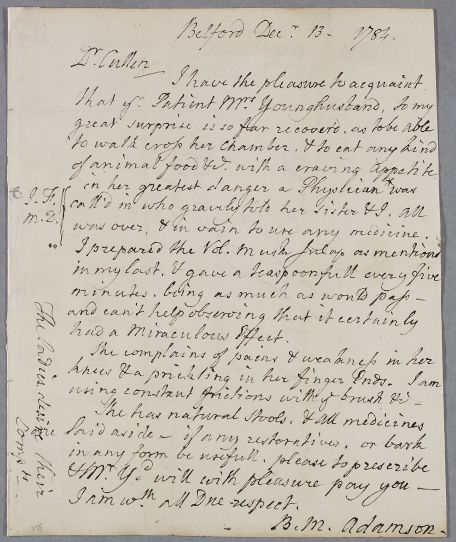 Belford Decr. 13- 1784.
Dr. Cullen
I have the pleasure to acquaint
that yr. Patient Mrs. Younghusband, to my
great surprise is so far recoverd. as to be able
to walk cross her chamber. & to eat any kind
of animal food &c. with a craving appetite
in her greatest danger a Physician* was
call'd in who gravely told her sister & I. all
was over, & in vain to use any medicine.
* J. F.
M. D.
I prepared the Vol. Musk Julap as mentiond
in my last. & gave a teaspoonfull every five
minutes. being as much as wou'd pass-
and can't help observing that it certainly
had a Miraculous Effect.
She complains of pains & weakness in her
knees & a prickling in her finger Ends. I am
using constant frictions with ye brush &c-
She has natural stools. & all medicines
laid aside- if any restoratives. or bark
in any form be usefull. please to prescribe
& Mr. Yd. will with pleasure pay you-
I am wth. all Due respect.
B. M. Adamson.
The ladies desire their
Compts.